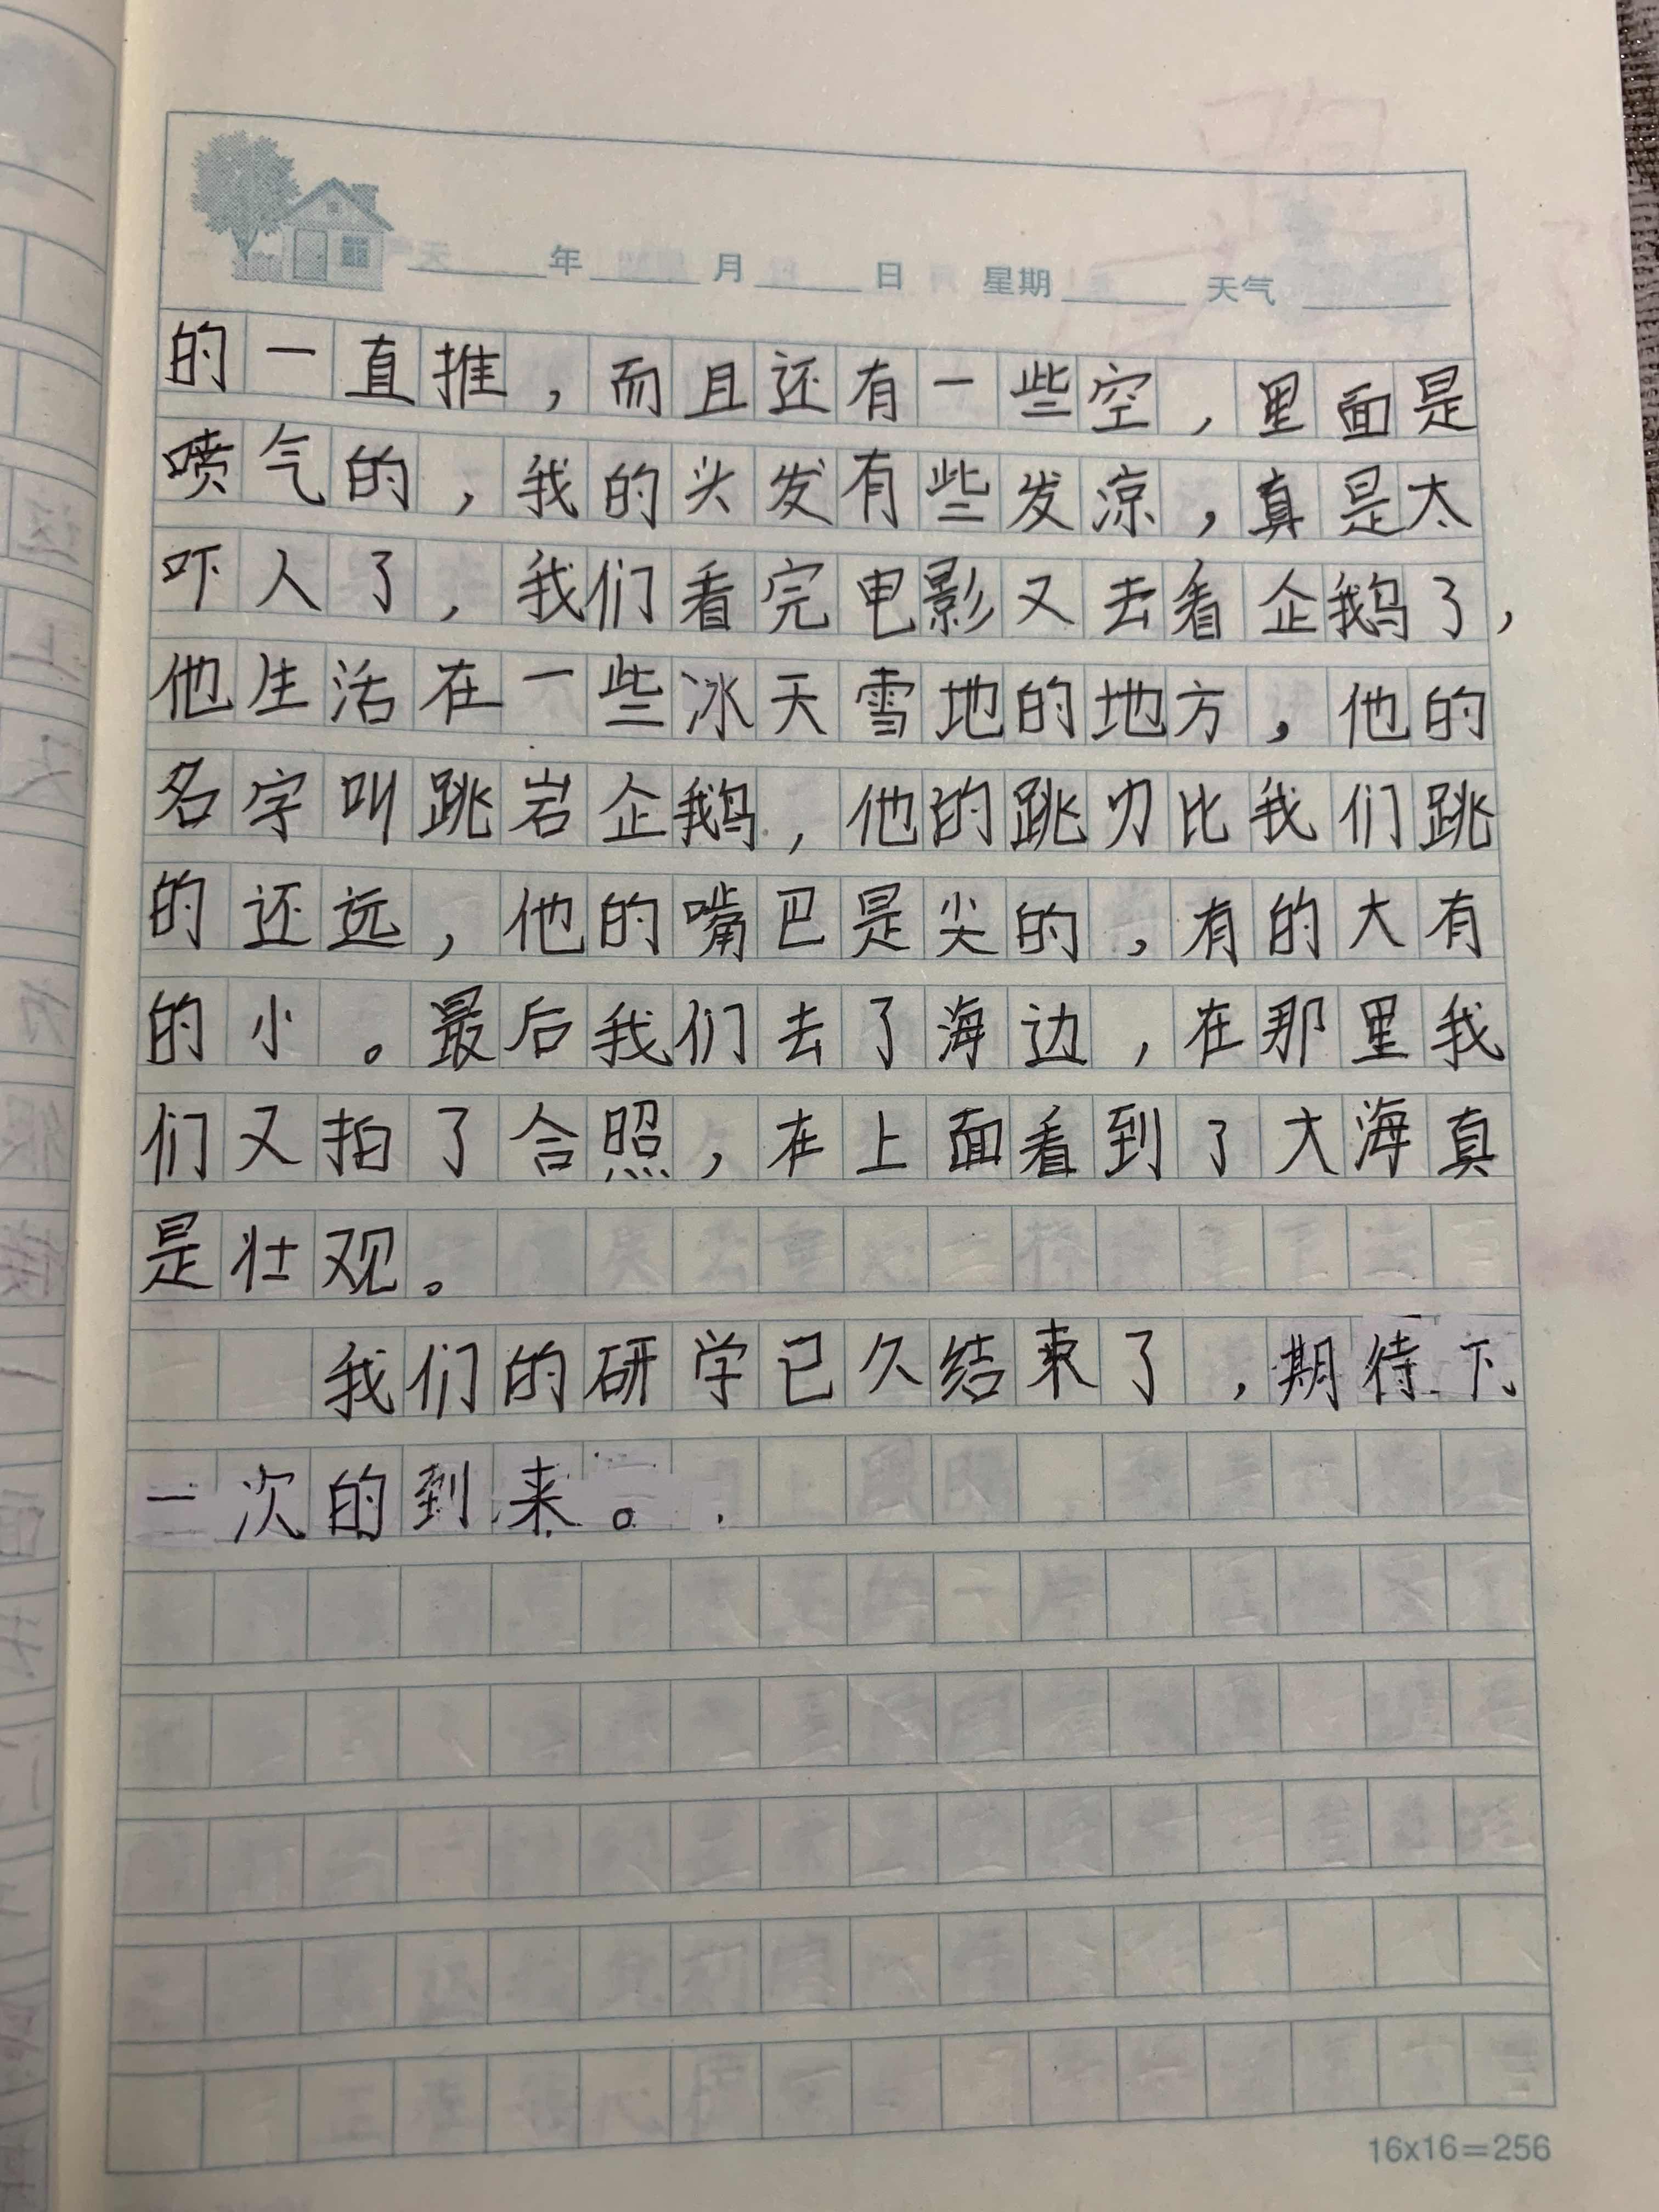 年 月 日 星期 天气
的一直推，而且还有一些空，里面是
喷气的，我的头发有些发凉，真是太
吓人了，我们看完电影又去看企鹅了，
他生活在一些冰天雪地的地方，他的
名字叫跳岩企鹅，他的跳力比我们跳
的还远，他的嘴巴是尖的，有的大有
的小。最后我们去了海边，在那里我
们又拍了合照，在上面看到了大海真
是壮观。
我们的研学已久结束了，期待下
一次的到来。
16x16=256